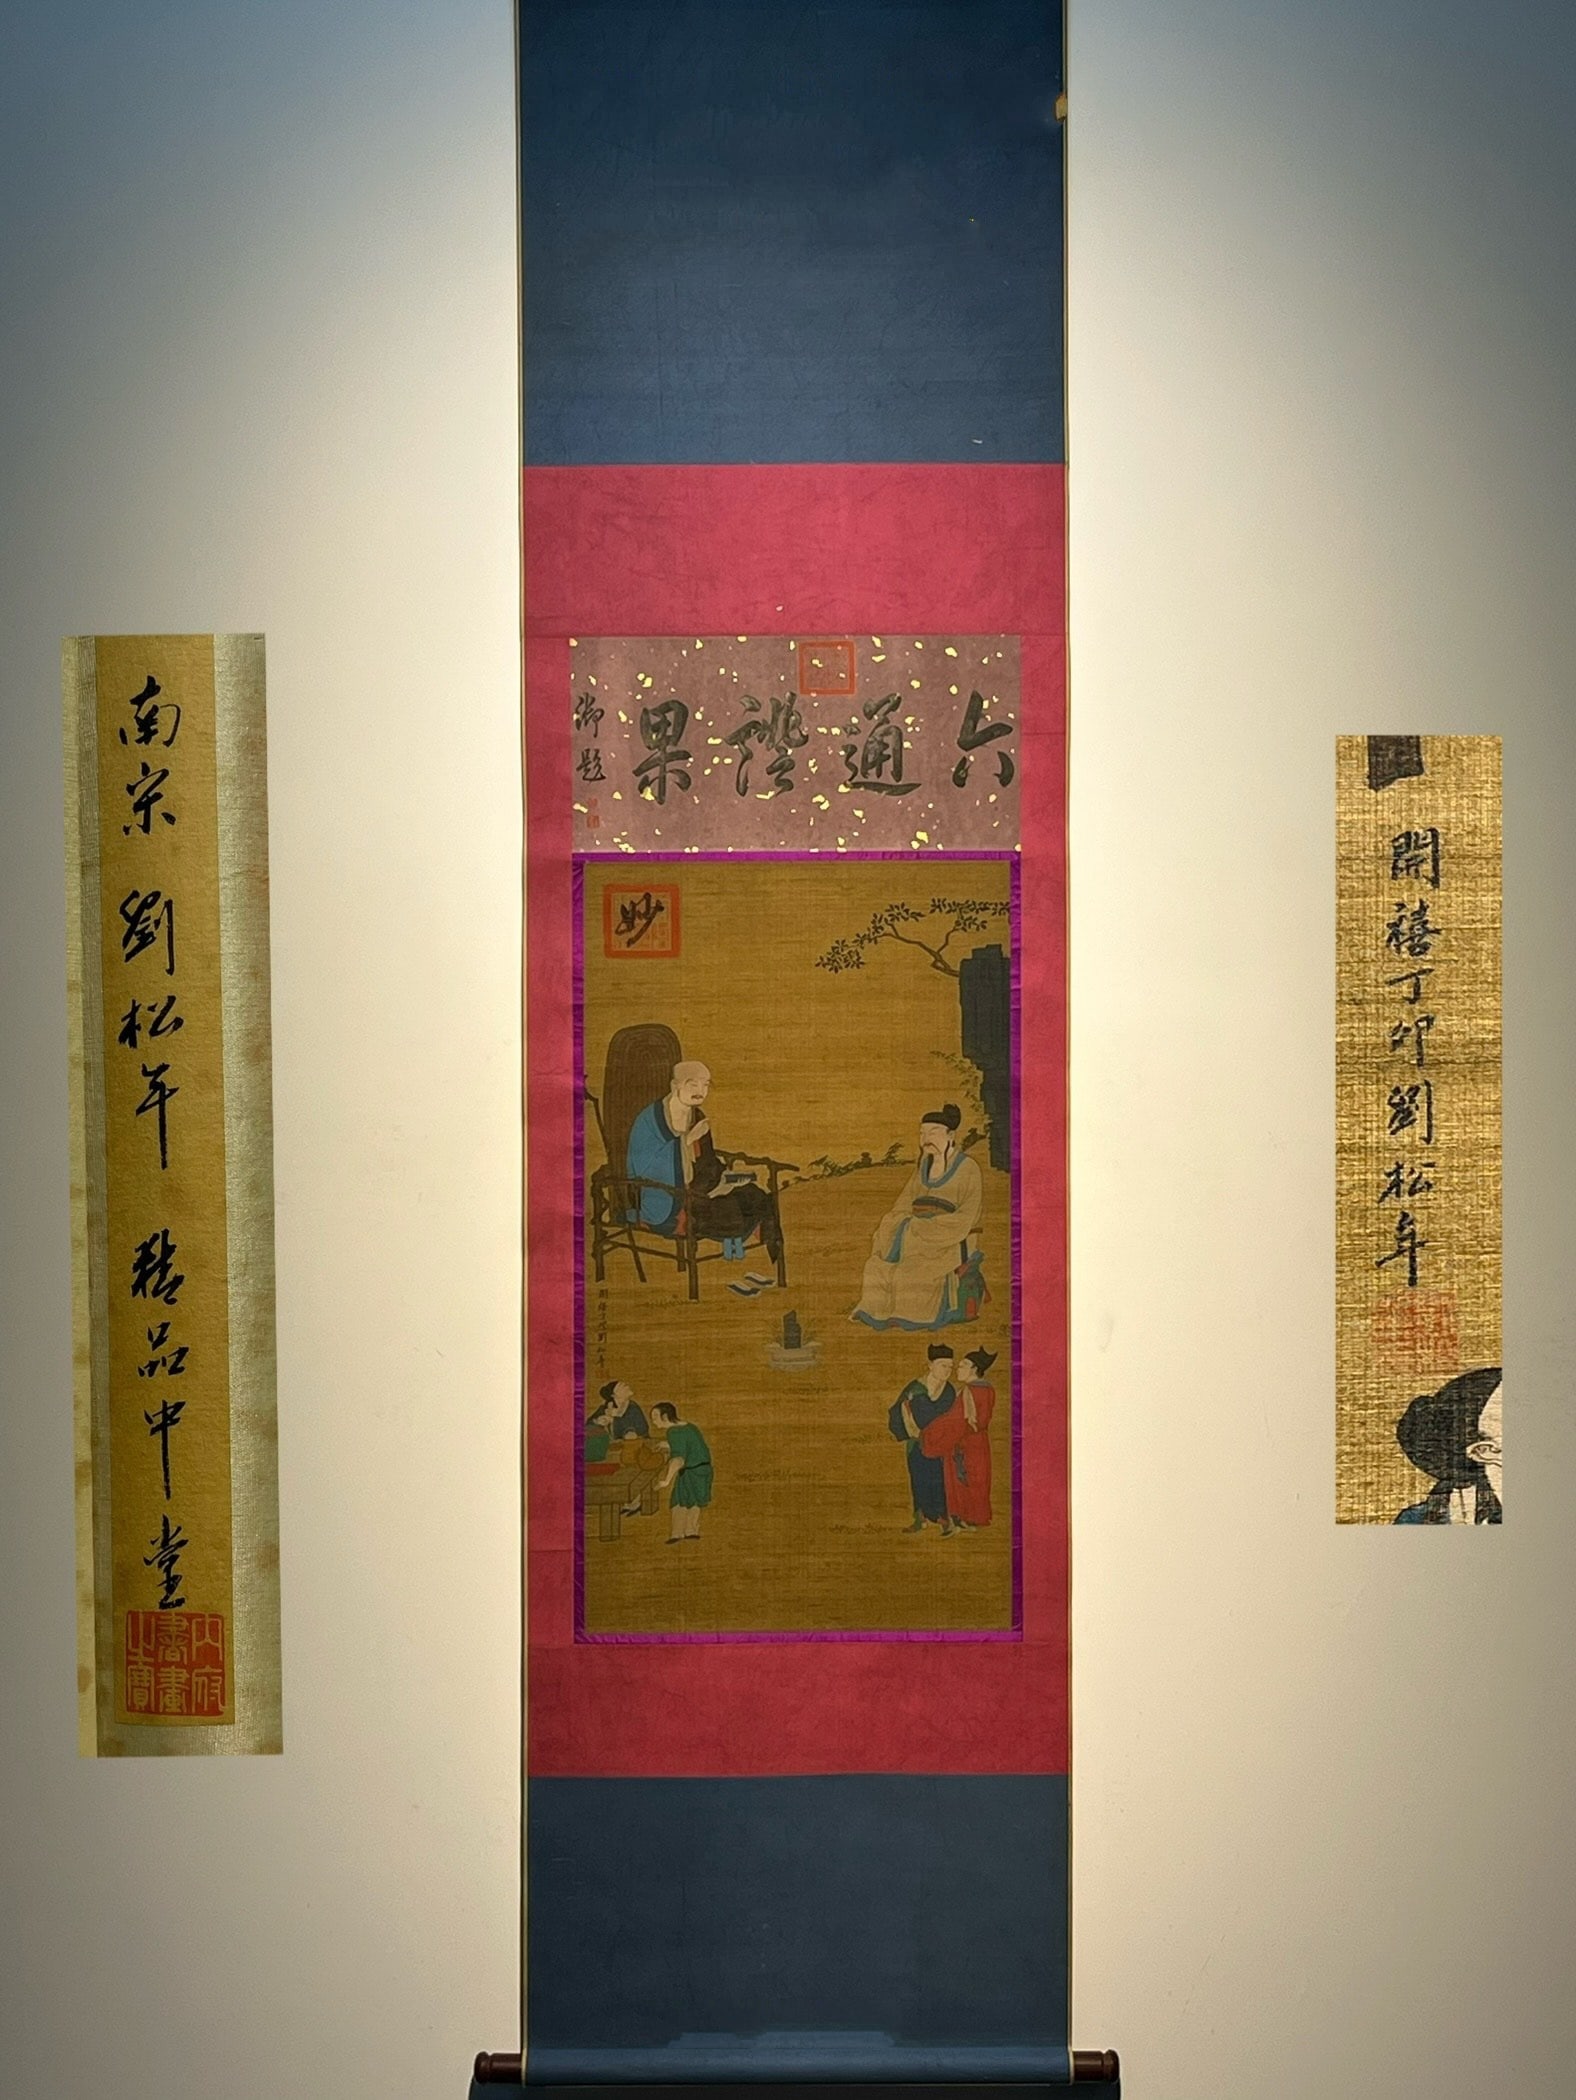 南宋 劉松年 精品中堂
內府書畫之寶
六通證果
御題
妙
開禧丁卯劉松年
開禧丁卯劉松年